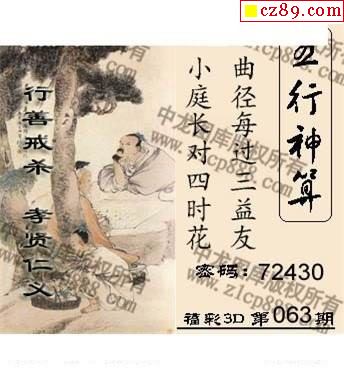 cz89.com
五行神算
曲径每过三益友
小庭长对四时花
行善戒杀 孝贤仁义
密码：72430
福彩3D 第063期
中龙图库版权所有
www.z1cp888.com